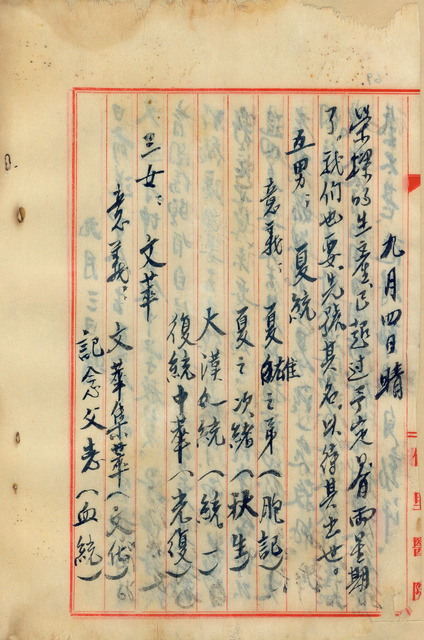 九月四日晴
榮探的生產已超过予定日着兩星期
了。我們也要先號其名以待其出世。
五男：夏統
意義：夏雄之弟（胞記）
夏之次緒（秋生）
大漢之統（統一）
復統中華（光復）
三女：文華
意義：文華集華（文化）
記念父老（血統）